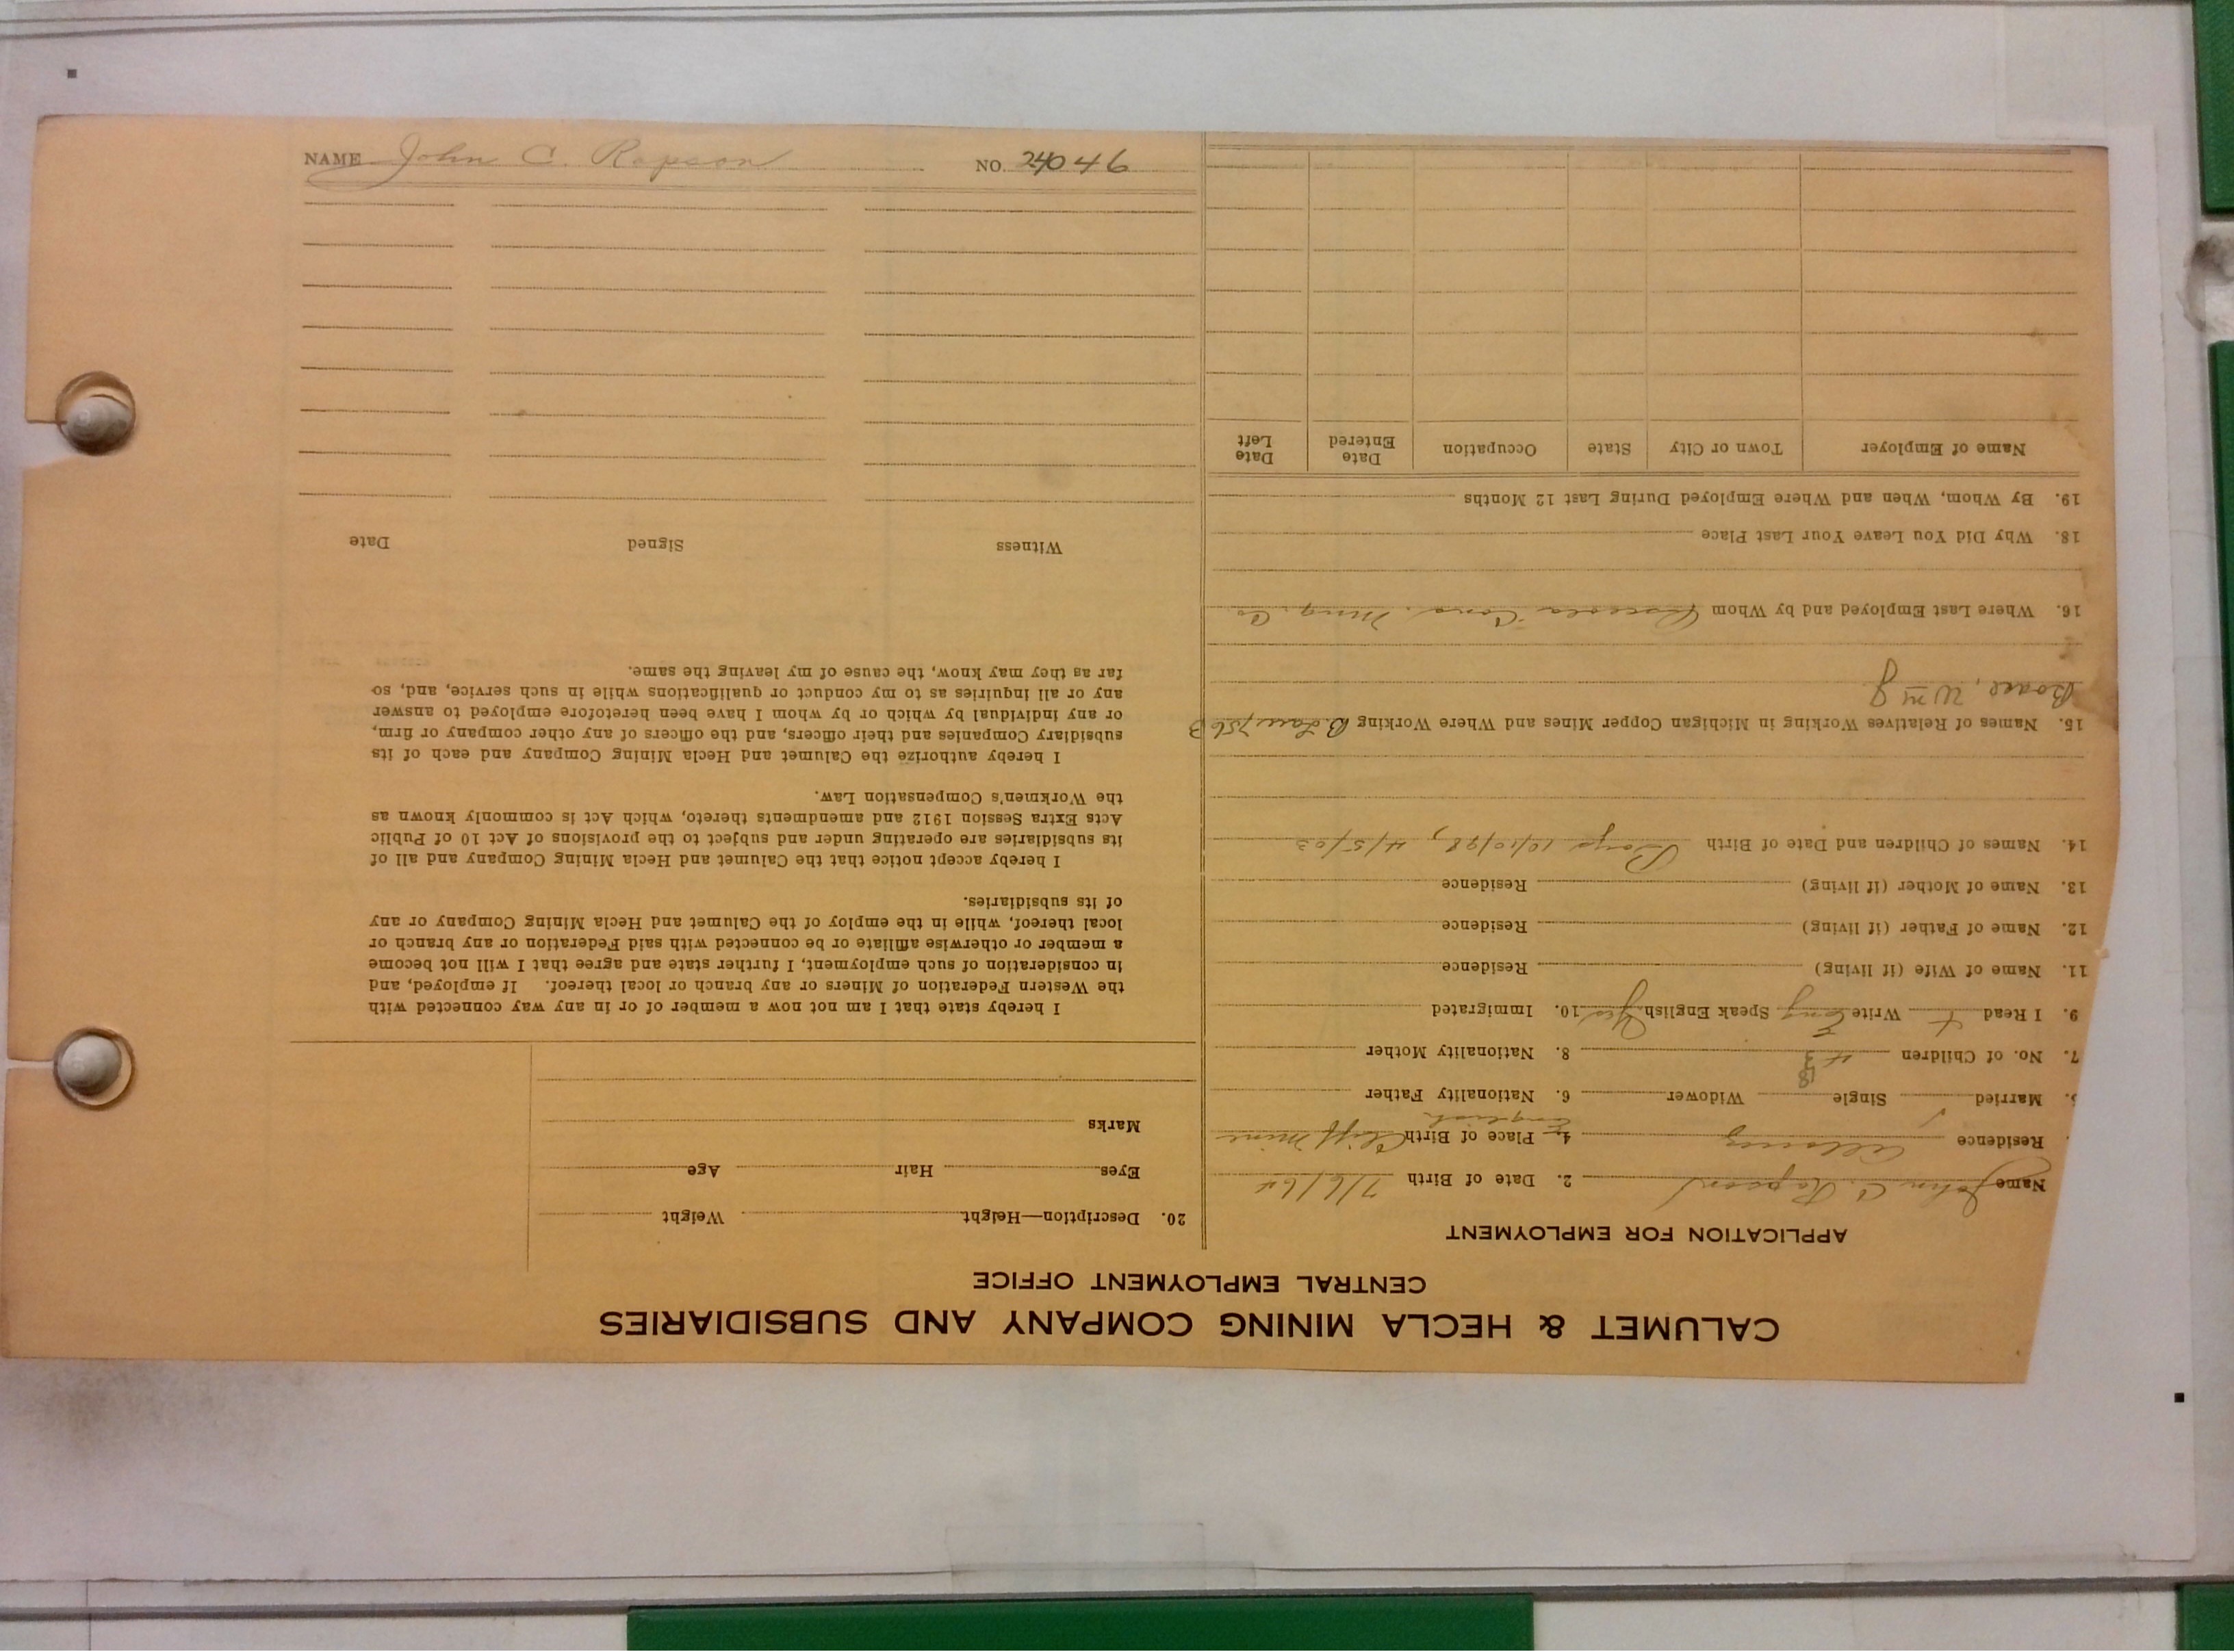 NAME John C. Rapson NO. 24046
CALUMET & HECLA MINING COMPANY AND SUBSIDIARIES
CENTRAL EMPLOYMENT OFFICE
APPLICATION FOR EMPLOYMENT
Name John C. Rapson 2. Date of Birth 7/6/64
Residence 4. Place of Birth Cliff Mine
English
5. Married Single Widower 6. Nationality Father
18
7. No. of Children 4 3 8. Nationality Mother
9. I Read + Write Eng Speak English Yes 10. Immigrated
11. Name of Wife (if living) Residence
12. Name of Father (if living) Residence
13. Name of Mother (if living) Residence
14. Names of Children and Date of Birth Boys 10/10/98, 4/5/03
15. Names of Relatives Working in Michigan Copper Mines and Where Working B. Law 756 B
Wm J
16. Where Last Employed and by Whom Osceola Cons. Ming. Co
18. Why Did You Leave Your Last Place
19. By Whom, When and Where Employed During Last 12 Months
Name of Employer Town or City State Occupation Date Entered Date Left
20. Description—Height Weight
Eyes Hair Age
Marks
I hereby state that I am not now a member of or in any way connected with
the Western Federation of Miners or any branch or local thereof. If employed, and
in consideration of such employment, I further state and agree that I will not become
a member or otherwise affiliate or be connected with said Federation or any branch or
local thereof, while in the employ of the Calumet and Hecla Mining Company or any
of its subsidiaries.
I hereby accept notice that the Calumet and Hecla Mining Company and all of
its subsidiaries are operating under and subject to the provisions of Act 10 of Public
Acts Extra Session 1912 and amendments thereto, which Act is commonly known as
the Workmen's Compensation Law.
I hereby authorize the Calumet and Hecla Mining Company and each of its
subsidiary Companies and their officers, and the officers of any other company or firm,
or any individual by which or by whom I have been heretofore employed to answer
any or all inquiries as to my conduct or qualifications while in such service, and, so
far as they may know, the cause of my leaving the same.
Witness Signed Date